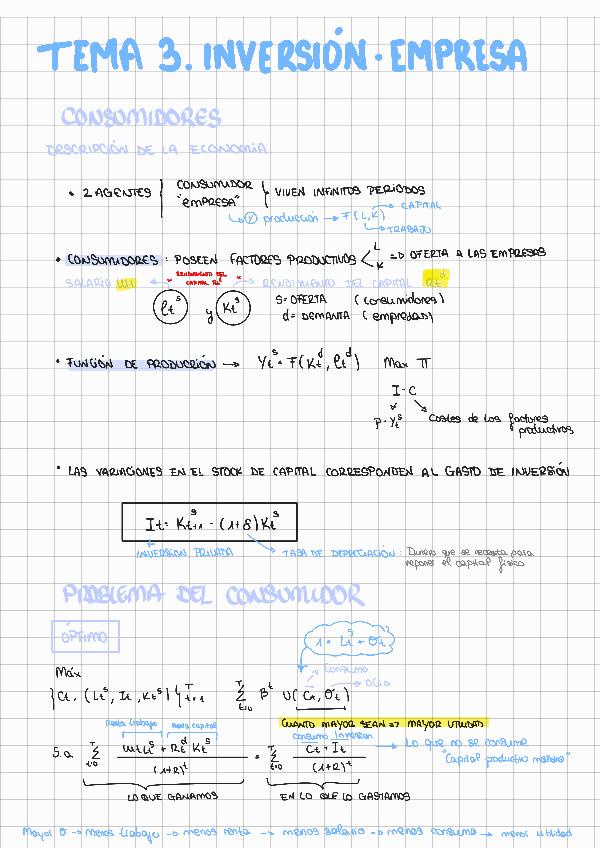 TEMA 3. INVERSIÓN · EMPRESA
CONSUMIDORES
DESCRIPCIÓN DE LA ECONOMÍA
• 2 AGENTES { CONSUMIDOR "EMPRESA" } VIVEN INFINITOS PERIODOS
Ⓨ producción → F(L,K) → CAPITAL
→ TRABAJO
• CONSUMIDORES : POSEEN FACTORES PRODUCTIVOS < L K => OFERTA A LAS EMPRESAS
SALARIO Wt ← RENDIMIENTO DEL CAPITAL Rt → RENDIMIENTO DEL CAPITAL Rt^d
lt^s y Kt^s
S = OFERTA (consumidores)
d = DEMANTA (empresas)
• FUNCIÓN DE PRODUCCIÓN → Yt^s = F(Kt^d, lt^d) Max Π
I - C
P · Yt^s Costes de los factores productivos
• LAS VARIACIONES EN EL STOCK DE CAPITAL CORRESPONDEN AL GASTO DE INVERSIÓN
It = Kt+1^s - (1+δ)Kt^s
INVERSIÓN PRIVADA → TASA DE DEPRECIACIÓN : Dinero que se necesita para
reponer el capital físico
PROBLEMA DEL CONSUMIDOR
ÓPTIMO
1 = Lt^s + Ot
Máx
Consumo
OCIO
{Ct, (Lt^s, It, Kt^s)}^T t=1 Σ^T t=0 β^t U(Ct, Ot)
CUANTO MAYOR SEAN => MAYOR UTILIDAD
Renta trabajo Renta capital consumo Inversion
S.a Σ^T t=0 WtLt^s + Rt^d Kt^s / (1+R)^t = Σ^T t=0 Ct + It / (1+R)^t → Lo que no se consume
"Capital productivo mañana"
LO QUE GANAMOS EN LO QUE LO GASTAMOS
Mayor O → menos trabajo → menos renta → menos salario → menos consumo → menor utilidad